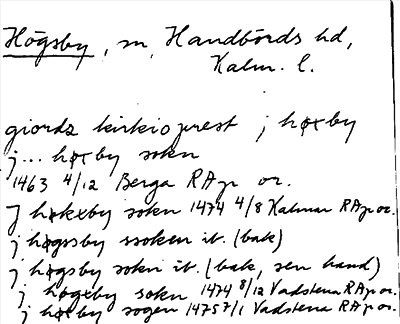 Högsby, sn, Handbörds hd,
Kalm. l.
giordz kirkioprest j høxby
j... høxby sokn
1463 4/12 Berga RAp or.
J høkxby sokn 1474 4/8 Kalmar RAp or.
j høgssby ssoken ib. (bak)
j høgsby sokn ib. (bak, sen hand)
j høgxby sokn 1474 8/12 Vadstena RAp or.
j høxby sogen 1475 7/1 Vadstena RAp or.